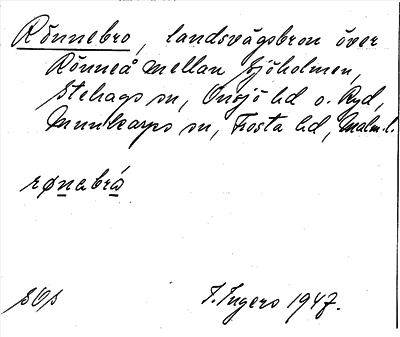 Rönnebro, landsvägsbron över
Rönneå mellan Sjöholmen,
Stehags sn, Onsjö hd o. Ryd,
Munkarps sn, Frosta hd, Malm.l.
rønabrå
I. Ingers 1947.